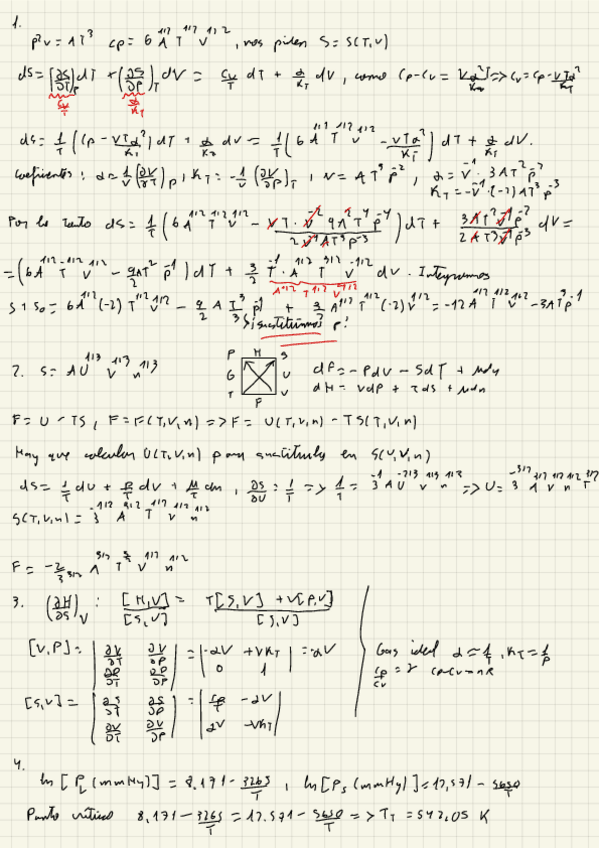 1.
p²v = AT³ cp = 6 A^{1/2} T^{1/2} v^{1/2}, nos piden S = S(T,v)
dS = (∂S/∂T)_P dT + (∂S/∂P)_T dV = cv/T dT + α/κ_T dV, como cp-cv = vTα²/κ_T => cv = cp - vTα²/κ_T
cv/T α/κ_T
dS = 1/T (cp - vTα²/κ_T) dT + α/κ_T dv = 1/T (6 A^{1/2} T^{1/2} v^{1/2} - vTα²/κ_T) dT + α/κ_T dv.
Coeficientes: α = 1/v (∂v/∂T)_P, κ_T = -1/v (∂v/∂P)_T, v = AT³p^{-2}, α = v^{-1} · 3AT²p^{-2}
κ_T = -v^{-1}(-2)AT³p^{-3}
Por lo tanto dS = 1/T (6 A^{1/2} T^{1/2} v^{1/2} - vT · v^{-2} 9A²T⁴p^{-4} / 2v^{-1}AT³p^{-3}) dT + 3AT²v^{-1}p^{-2} / 2AT³v^{-1}p^{-3} dV =
= (6A^{1/2} T^{-1/2} v^{1/2} - 9/2 AT² p^{-1}) dT + 3/2 T^{-1} · A^{1/2} T^{3/2} v^{-1/2} dv. Integramos
A^{1/2} T^{1/2} v^{-1/2}
S + S₀ = 6A^{1/2}(-2) T^{1/2} v^{1/2} - 9/2 A T³/3 p^{-1} + 3/2 A^{1/2} T^{1/2} (-2) v^{1/2} = -12 A^{1/2} T^{1/2} v^{1/2} - 3AT³p^{-1}
¡sustituimos p!
2. S = AU^{1/3} V^{1/3} n^{1/3}
P H S
G U
T F V
dF = -PdV - SdT + μdn
dH = VdP + TdS + μdn
F = U - TS, F = F(T,V,n) => F = U(T,V,n) - TS(T,V,n)
Hay que calcular U(T,V,n) para sustituirlo en S(U,V,n)
dS = 1/T dU + P/T dV + μ/T dn, ∂S/∂U = 1/T => 1/T = 3^{-1} A U^{-2/3} V^{1/3} n^{1/3} => U = 3^{-3/2} A^{3/2} V^{1/2} n^{1/2} T^{3/2}
S(T,V,n) = 3^{-1/2} A^{3/2} T^{1/2} V^{1/2} n^{1/2}
F = -2/3^{3/2} A^{3/2} T^{3/2} V^{1/2} n^{1/2}
3. (∂H/∂S)_V : [H,V]/[S,V] = T[S,V] + V[P,V] / [S,V]
[V,P] = |∂V/∂T ∂V/∂P ∂P/∂T ∂P/∂P| = |αV +Vκ_T 0 1| = αV
Gas ideal α = 1/T, κ_T = 1/P
cp/cv = γ cp-cv = nR
[S,V] = |∂S/∂T ∂S/∂P ∂V/∂T ∂V/∂P| = |cp/T -αV αV -Vκ_T|
4.
ln[P_L (mmHg)] = 8.171 - 3265/T, ln[P_S (mmHg)] = 12,571 - 5650/T
Punto crítico 8.171 - 3265/T = 12.571 - 5650/T => T_T = 542,05 K